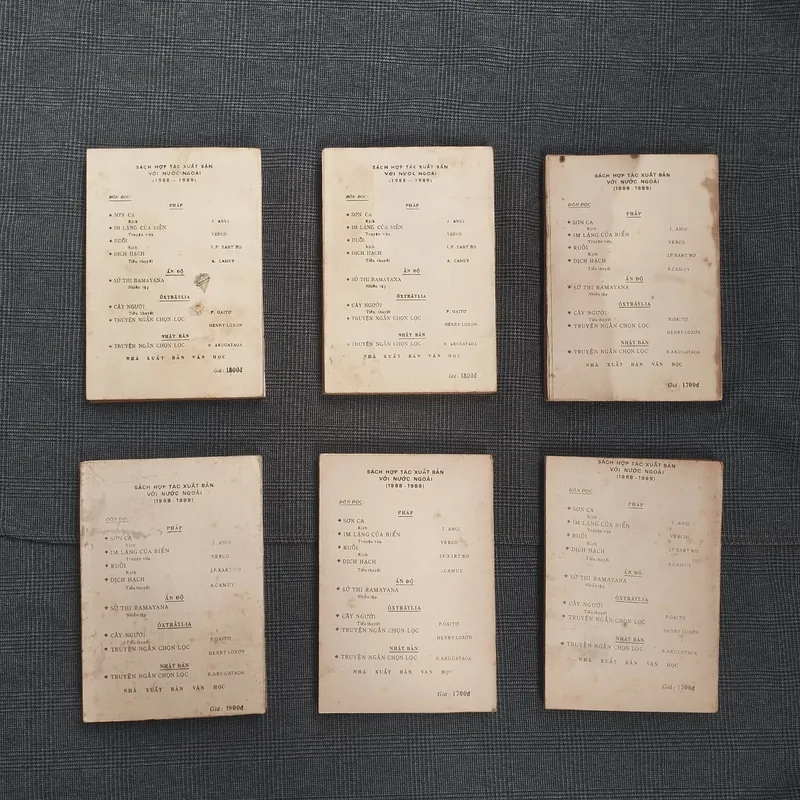 SÁCH HỢP TÁC XUẤT BẢN
VỚI NƯỚC NGOÀI
(1988 - 1989)
ĐÓN ĐỌC:
PHÁP
SƠN CA
Kịch J. ANUI
IM LẶNG CỦA BIỂN
Truyện vừa VERCO
RUỒI
Kịch J.P. XART'RƠ
DỊCH HẠCH
Tiểu thuyết A. CAMUY
ẤN ĐỘ
SỬ THI RAMAYANA
Nhiều tập
ÔXTRÂYLIA
CÂY NGƯỜI
Tiểu thuyết P. OAITO
TRUYỆN NGẮN CHỌN LỌC
HENRY LOXON
NHẬT BẢN
TRUYỆN NGẮN CHỌN LỌC R. AKUGATAOA
NHÀ XUẤT BẢN VĂN HỌC
Giá: 1800đ
SÁCH HỢP TÁC XUẤT BẢN
VỚI NƯỚC NGOÀI
(1988 - 1989)
ĐÓN ĐỌC:
PHÁP
SƠN CA
Kịch J. ANUI
IM LẶNG CỦA BIỂN
Truyện vừa VERCO
RUỒI
Kịch J.P. XART'RƠ
DỊCH HẠCH
Tiểu thuyết A. CAMUY
ẤN ĐỘ
SỬ THI RAMAYANA
Nhiều tập
ÔXTRÂYLIA
CÂY NGƯỜI
Tiểu thuyết P. OAITO
TRUYỆN NGẮN CHỌN LỌC
HENRY LOXON
NHẬT BẢN
TRUYỆN NGẮN CHỌN LỌC R. AKUGATAOA
NHÀ XUẤT BẢN VĂN HỌC
Giá: 1800đ
SÁCH HỢP TÁC XUẤT BẢN
VỚI NƯỚC NGOÀI
(1988 - 1989)
ĐÓN ĐỌC:
PHÁP
SƠN CA
Kịch J. ANUI
IM LẶNG CỦA BIỂN
Truyện vừa VERCO
RUỒI
Kịch J.P. XART'RƠ
DỊCH HẠCH
Tiểu thuyết A. CAMUY
ẤN ĐỘ
SỬ THI RAMAYANA
Nhiều tập
ÔXTRÂYLIA
CÂY NGƯỜI
Tiểu thuyết P. OAITO
TRUYỆN NGẮN CHỌN LỌC
HENRY LOXON
NHẬT BẢN
TRUYỆN NGẮN CHỌN LỌC R. AKUGATAOA
NHÀ XUẤT BẢN VĂN HỌC
Giá: 1700đ
SÁCH HỢP TÁC XUẤT BẢN
VỚI NƯỚC NGOÀI
(1988 - 1989)
ĐÓN ĐỌC:
PHÁP
SƠN CA
Kịch J. ANUI
IM LẶNG CỦA BIỂN
Truyện vừa VERCO
RUỒI
Kịch J.P. XART'RƠ
DỊCH HẠCH
Tiểu thuyết A. CAMUY
ẤN ĐỘ
SỬ THI RAMAYANA
Nhiều tập
ÔXTRÂYLIA
CÂY NGƯỜI
Tiểu thuyết P. OAITO
TRUYỆN NGẮN CHỌN LỌC
HENRY LOXON
NHẬT BẢN
TRUYỆN NGẮN CHỌN LỌC R. AKUGATAOA
NHÀ XUẤT BẢN VĂN HỌC
Giá:
SÁCH HỢP TÁC XUẤT BẢN
VỚI NƯỚC NGOÀI
(1988 - 1989)
ĐÓN ĐỌC:
PHÁP
SƠN CA
Kịch J. ANUI
IM LẶNG CỦA BIỂN
Truyện vừa VERCO
RUỒI
Kịch J.P. XART'RƠ
DỊCH HẠCH
Tiểu thuyết CAMUY
ẤN ĐỘ
SỬ THI RAMAYANA
Nhiều tập
ÔXTRÂYLIA
CÂY NGƯỜI
Tiểu thuyết P. OAITO
TRUYỆN NGẮN CHỌN LỌC
HENRY LOXON
NHẬT BẢN
TRUYỆN NGẮN CHỌN LỌC R. AKUGATAOA
NHÀ XUẤT BẢN VĂN HỌC
Giá: 1700đ
SÁCH HỢP TÁC XUẤT BẢN
VỚI NƯỚC NGOÀI
(1988 - 1989)
ĐÓN ĐỌC:
PHÁP
SƠN CA
Kịch J. ANUI
IM LẶNG CỦA BIỂN
Truyện vừa VERCO
RUỒI
Kịch J.P. XART'RƠ
DỊCH HẠCH
Tiểu thuyết A. CAMUY
ẤN ĐỘ
SỬ THI RAMAYANA
Nhiều tập
ÔXTRÂYLIA
CÂY NGƯỜI
Tiểu thuyết P. OAITO
TRUYỆN NGẮN CHỌN LỌC
HENRY LOXON
NHẬT BẢN
TRUYỆN NGẮN CHỌN LỌC R. AKUGATAOA
NHÀ XUẤT BẢN VĂN HỌC
Giá: 1700đ